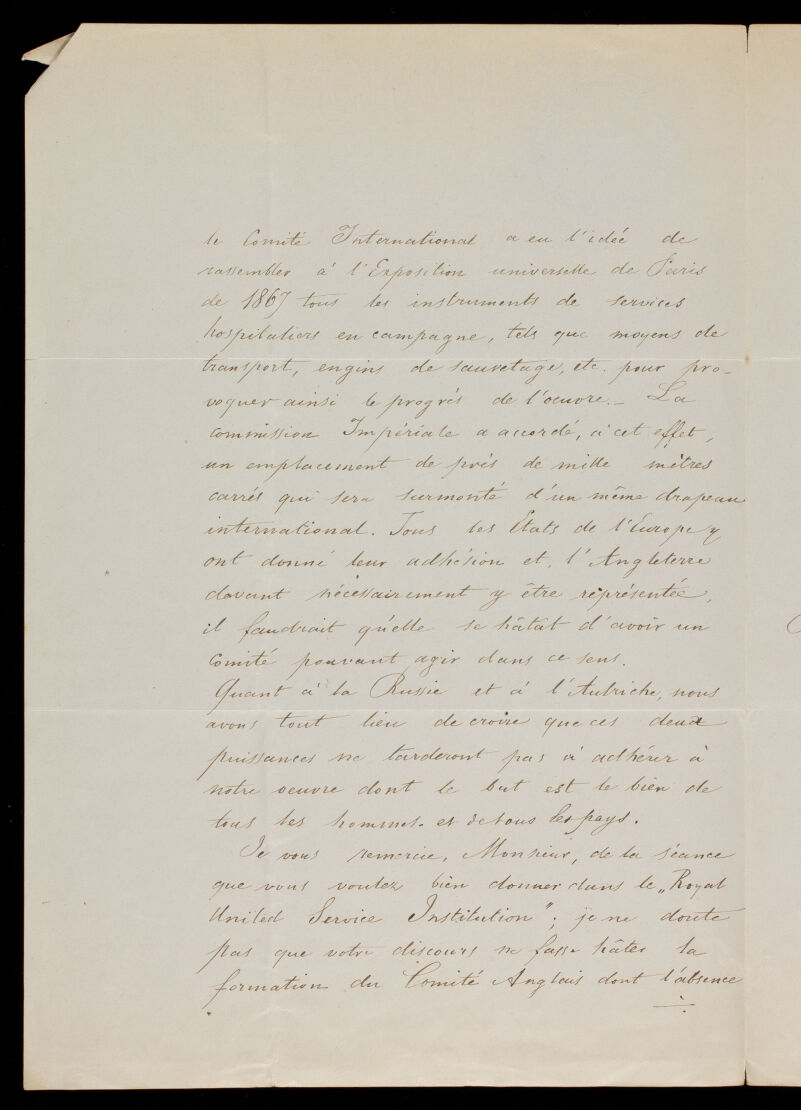 le Comité International a eu l'idée de
rassembler à l'Exposition universelle de Paris
de 1867 tous les instruments de services
hospitaliers en campagne, tels que moyens de
transport, engins de sauvetage, etc. pour pro-
voquer ainsi le progrès de l'oeuvre. – La
commission Impériale a accordé, à cet effet,
un emplacement de près de mille mètres
carrés qui sera surmonté d'un même drapeau
international. Tous les États de l'Europe y
ont donné leur adhésion et, l'Angleterre
devant nécessairement y être représentée,
il faudrait qu'elle se hâtât d'avoir un
comité pouvant agir dans ce sens.
Quant à la Russie et à l'Autriche, nous
avons tout lieu de croire que ces deux
puissances ne tarderont pas à adhérer à
notre oeuvre dont le but est le bien de
tous les hommes et de tous les pays.
Je vous remercie, Monsieur, de la séance
que vous voulez bien donner dans le „Royal
United Service Institution"; je ne doute
pas que votre discours ne fasse hâter la
formation du Comité Anglais dont l'absence